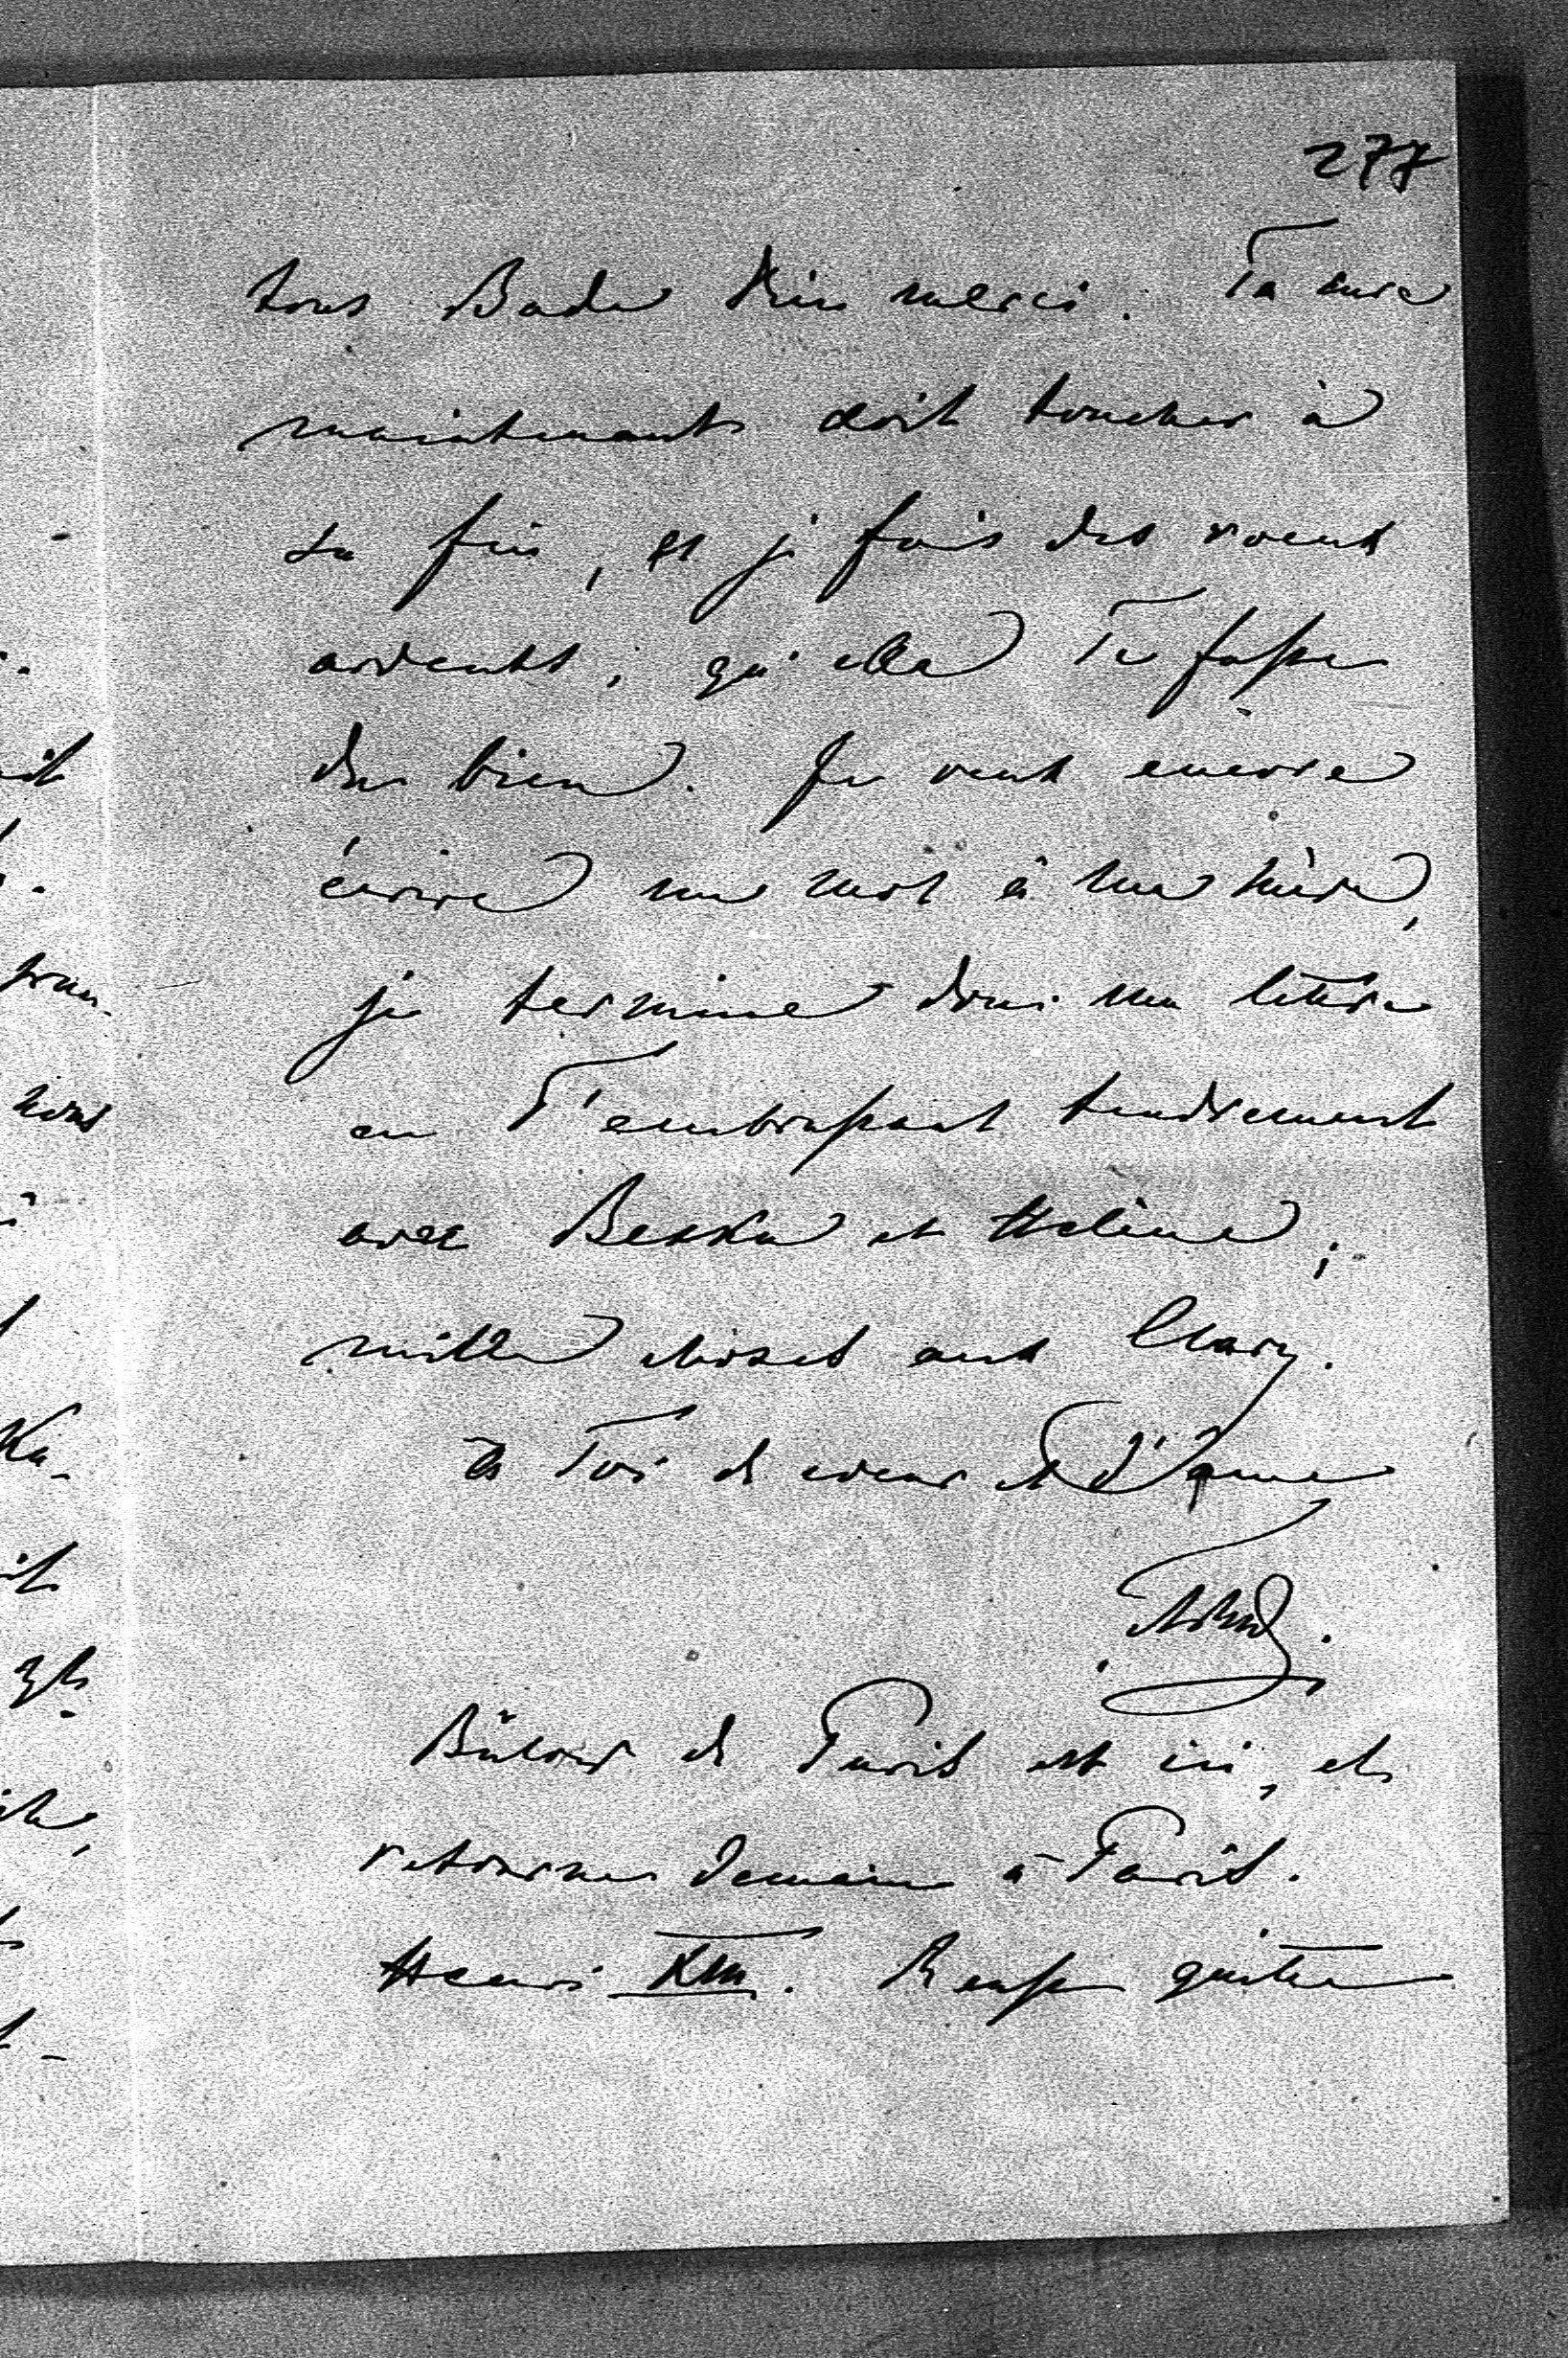 277
tous Bade Dieu merci. Ta cure
maintenant doit toucher à
sa fin, et je fais des voeux
ardents, qu'elle Te fasse
du bien. Je veux encore
écrire un mot à ma mère,
je termine donc ma lettre
en T'embrassant tendrement
avec Bekka et Hélène;
mille choses aux Clary.
à Toi de coeur et d'âme
Bülow de Paris est ici, et
retourne demain à Paris.
Henri XIII. Reuss quitte